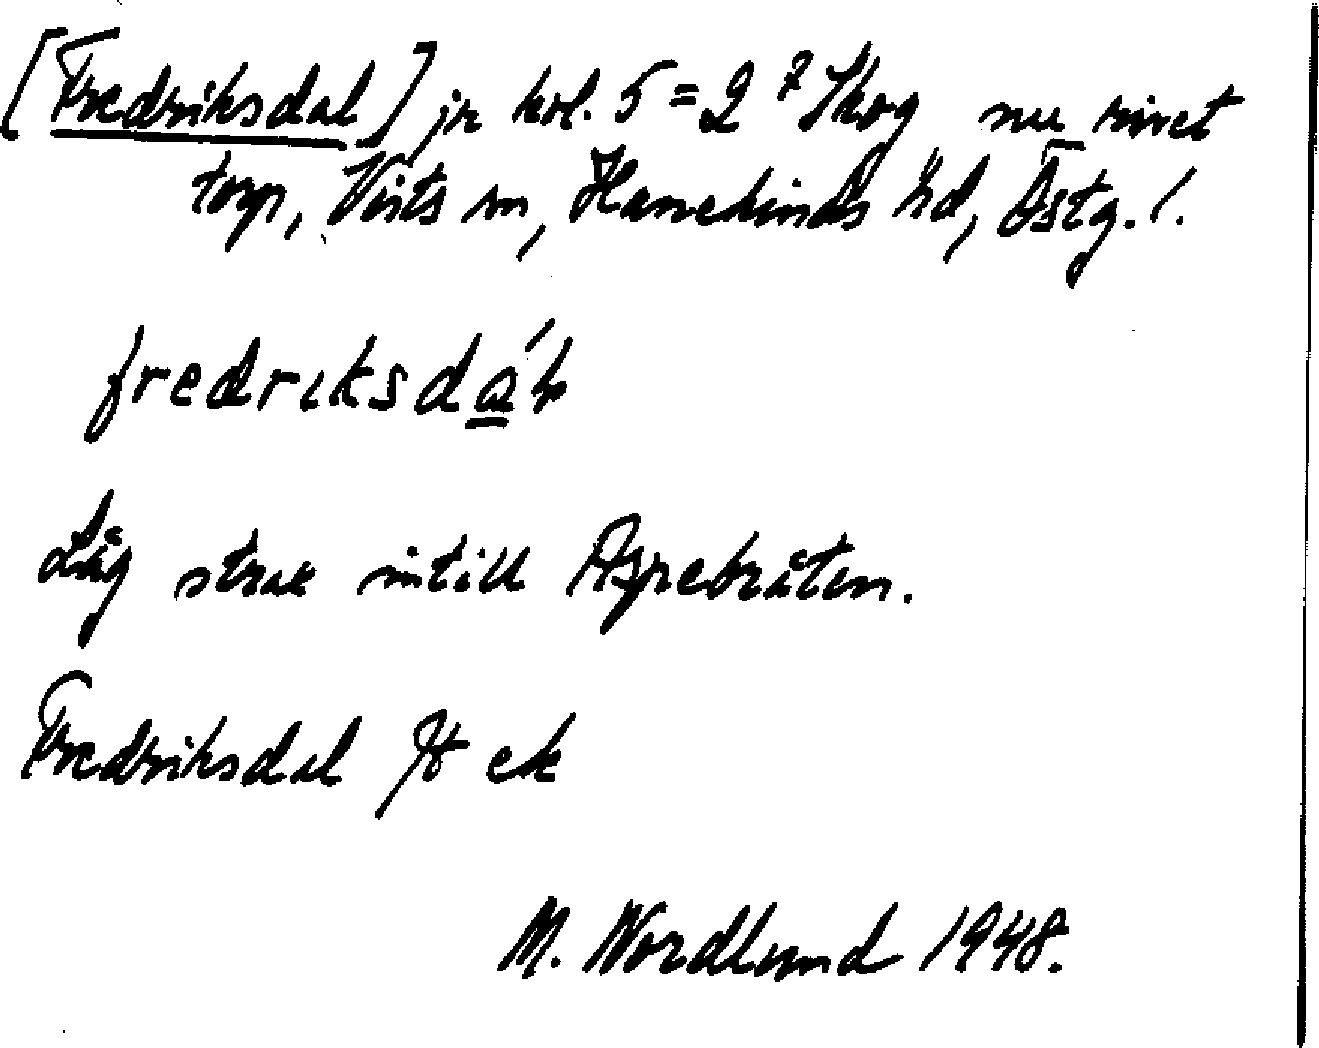 [Fredriksdal] jr kol. 5 = 2 Skog nu rivet
torp, Vists sn, Hanekinds hd, Östg. l.
fredriksdáɫ
Låg strax intill Aspebråten.
Fredriksdal ek
M. Nordlund 1948.